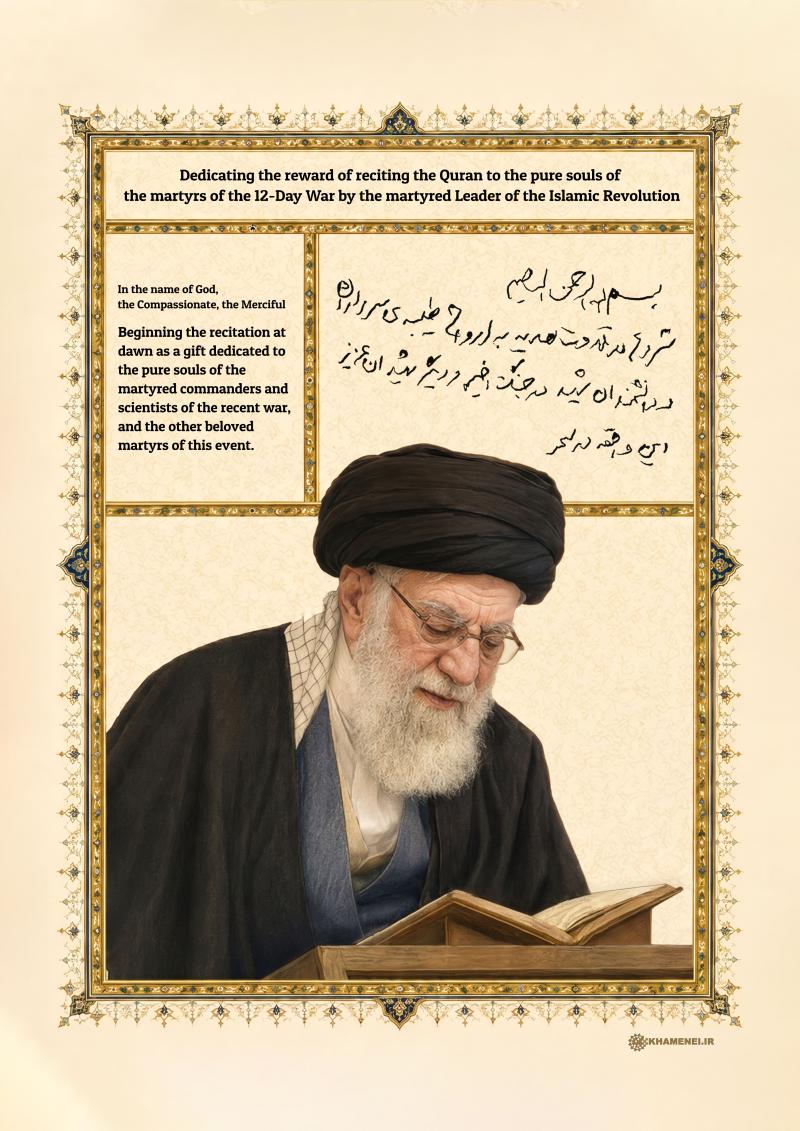 Dedicating the reward of reciting the Quran to the pure souls of
the martyrs of the 12-Day War by the martyred Leader of the Islamic Revolution
In the name of God,
the Compassionate, the Merciful
Beginning the recitation at
dawn as a gift dedicated to
the pure souls of the
martyred commanders and
scientists of the recent war,
and the other beloved
martyrs of this event.
بسم الله الرحمن الرحیم
شروع در تلاوت هدیه به ارواح طیبه‌ی سرداران
و دانشمندان شهید در جنگ اخیر و دیگر شهیدان عزیز
این واقعه در سحر
KHAMENEI.IR